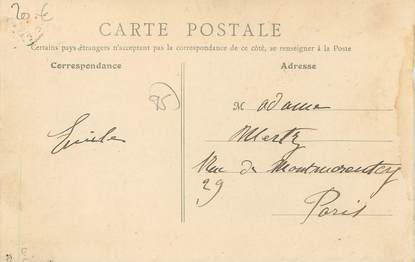 20.€
CARTE POSTALE
Certains pays étrangers n'acceptant pas la correspondance de ce côté, se renseigner à la Poste
Correspondance
Adresse
95
Emile
Madame
Mertz
Rue de Montmorency
29
Paris